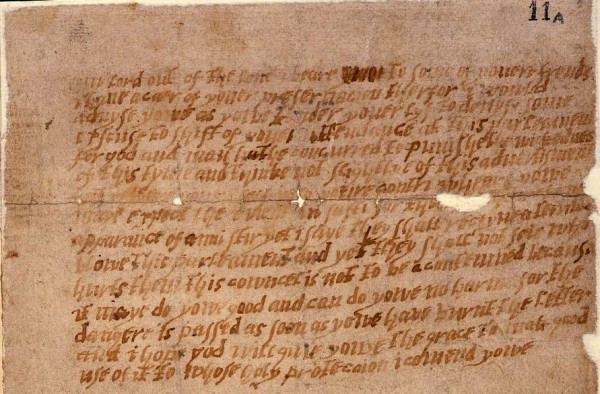 11A
lord out of the love i beare to some of youere frends
i have a caer of youer preseruacion therfor i would
advyse yowe as yowe tender youer lyf to devyse some
excuse to shift of youer attendance at this parleament
for god and man hathe concurred to punishe the wickednes
of this tyme and thinke not slightlye of this advertisment
contri wheare yowe
maye expect the event in safti for
apparance of anni stir yet i saye they shall receyve a terrible
blowe this parleament and yet they shall not seie who
hurts them this councel is not to be a contemned because
it maye do yowe good and can do yowe no harme for the
dangere is passed as soon as yowe have burnt the letter
and i hope god will give yowe the grace to mak good
use of it to whose holy proteccion i comend yowe